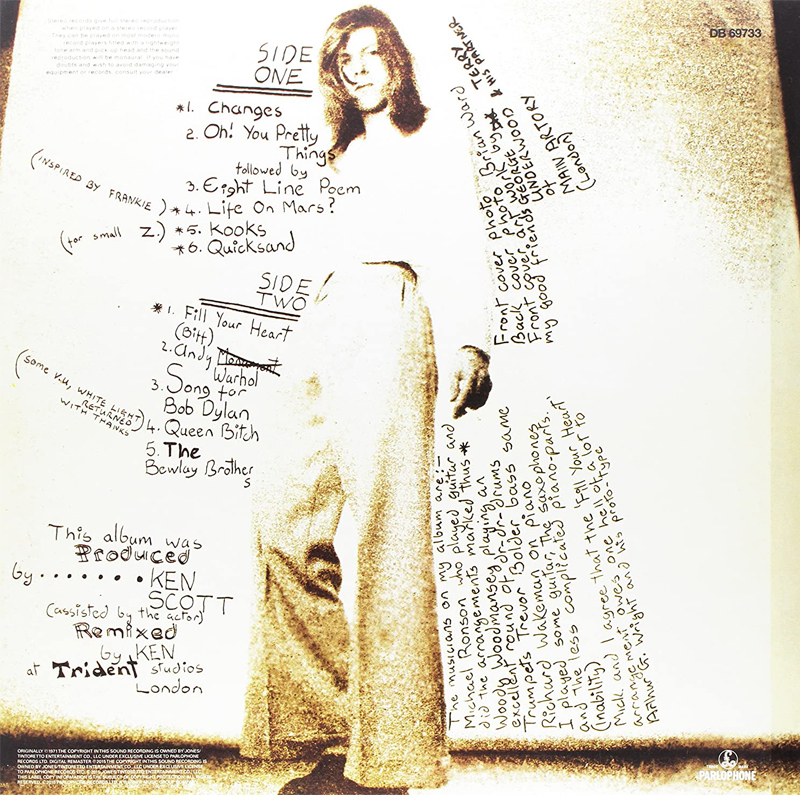 Stereo records give full stereo reproduction
when played on a stereo record player.
They can be played on most modern mono
record players fitted with a lightweight
tone arm and pick-up head and the sound
reproduction will be monaural. If you have
doubts and wish to avoid damaging your
equipment or records, consult your dealer.
DB 69733
SIDE
ONE
*1. Changes
2. Oh! You Pretty
Things
followed by
3. Eight Line Poem
(INSPIRED BY FRANKIE) *4. Life On Mars?
(for small Z.) *5. Kooks
*6. Quicksand
SIDE
TWO
*1. Fill Your Heart
(Biff)
2. Andy
Warhol
3. Song for
Bob Dylan
(some V.U. WHITE LIGHT
RETURNED
WITH THANKS) 4. Queen Bitch
5. The
Bewlay Brother
s
This album was
Produced
by........KEN
SCOTT
(assisted by the actor)
Remixed
by KEN
at Trident studios
London
Front cover photo Brian Ward
Back cover photo
Front cover art work
my good friends GEORGE
UNDERWOOD
TERRY
& HIS PARTNER
of
MAIN ARTORY
(London)
The musicians on my album are:-
Michael Ronson who played guitar and
did the arrangements marked thus *
Woody Woodmansey playing an
excellent round of dr-dr-drums
Trumpets Trevor Bolder bass same
Richard Wakeman on piano
I played some guitar, the saxophones
and the less complicated piano-parts.
(inability)
Mick and I agree that the 'Fill Your Heart'
arrangement owes one hell of a lot to
Arthur G. Wright and his proto-type
ORIGINALLY ℗1971 THE COPYRIGHT IN THIS SOUND RECORDING IS OWNED BY JONES/
TINTORETTO ENTERTAINMENT CO., LLC UNDER EXCLUSIVE LICENSE TO PARLOPHONE
RECORDS LTD. DIGITAL REMASTER ℗2015 THE COPYRIGHT IN THIS SOUND RECORDING IS
OWNED BY JONES/TINTORETTO ENTERTAINMENT CO., LLC UNDER EXCLUSIVE LICENSE
TO PARLOPHONE RECORDS LTD. © 2015 JONES/TINTORETTO ENTERTAINMENT CO., LLC.
PARLOPHONE